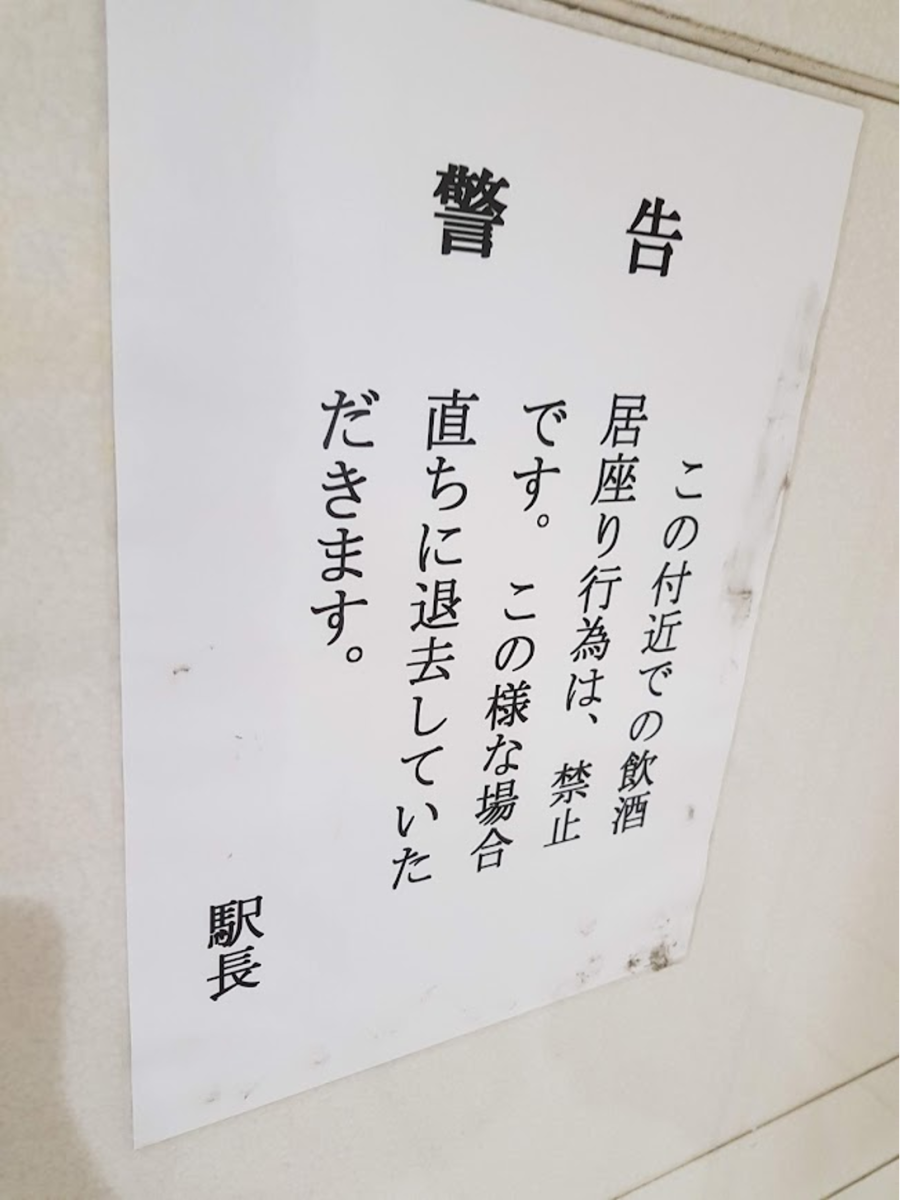 警告
この付近での飲酒
居座り行為は、禁止
です。この様な場合
直ちに退去していた
だきます。
駅長